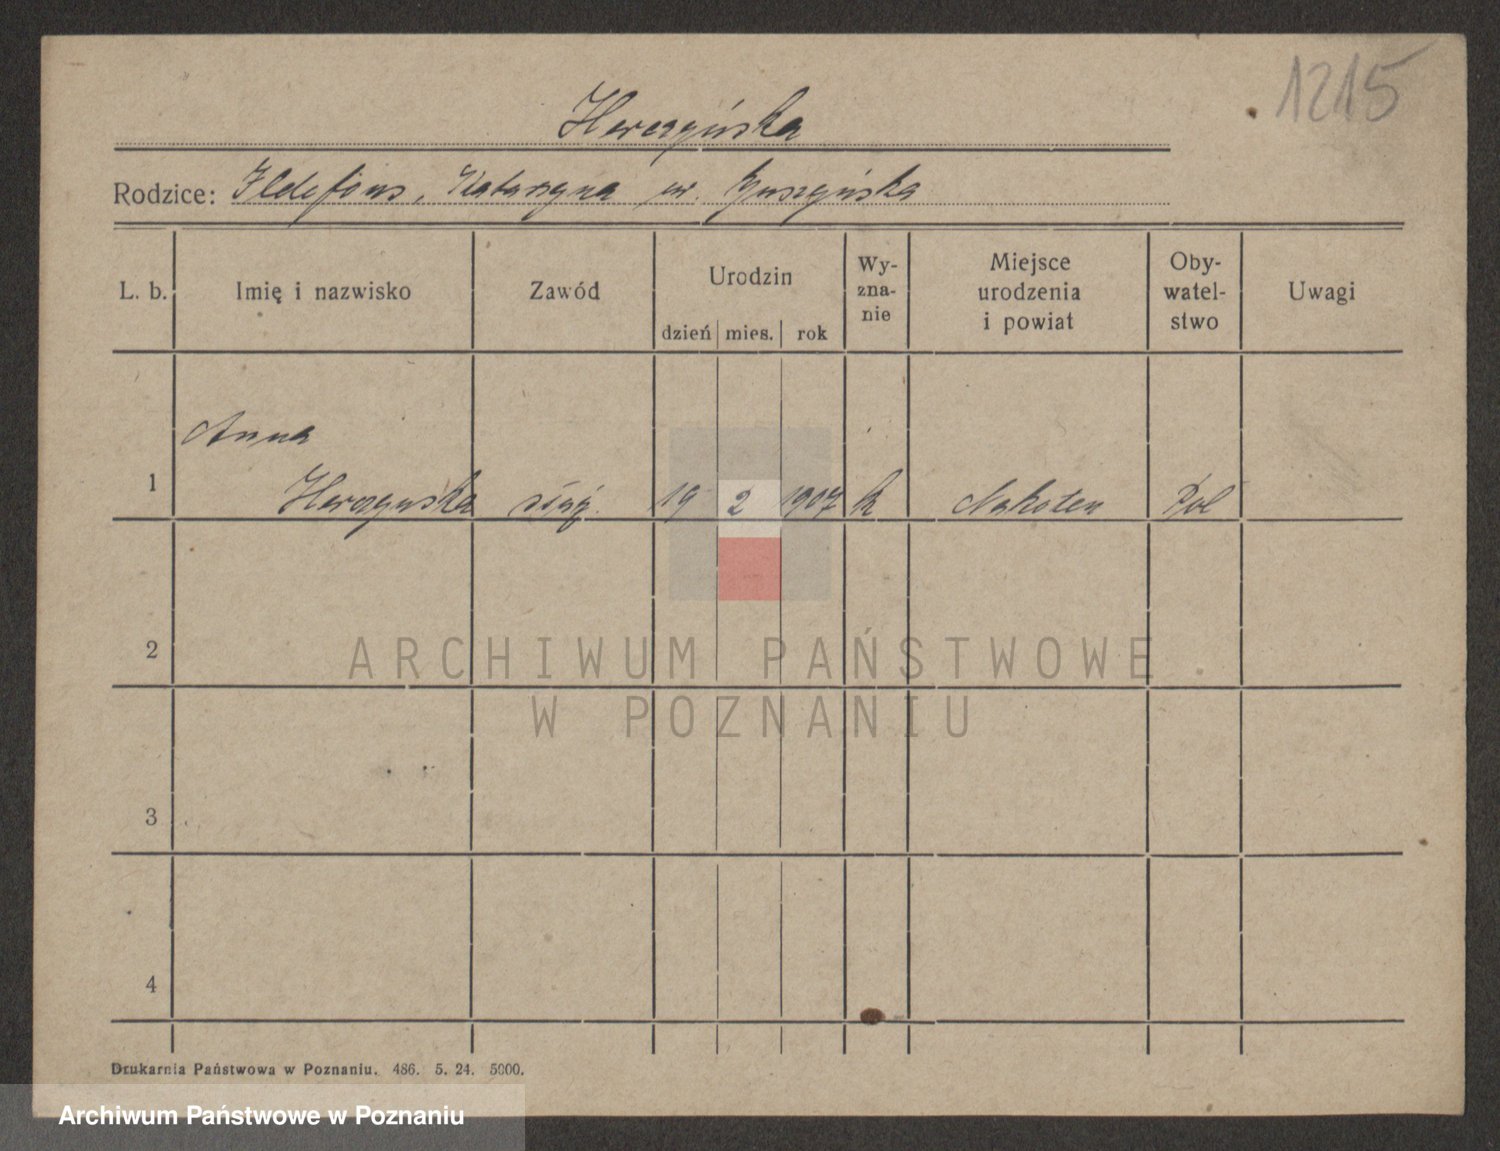 1215
Herczyńska
Rodzice: Ildefons, Katarzyna ur.
L. b. Imię i nazwisko Zawód Urodzin dzień mies. rok Wy-zna-nie Miejsce urodzenia i powiat Oby-watel-stwo Uwagi
Anna
1 służ. 19 2 1907 k Pol
2
3
4
Drukarnia Państwowa w Poznaniu. 486. 5. 24. 5000.
ARCHIWUM PAŃSTWOWE
W POZNANIU
Archiwum Państwowe w Poznaniu